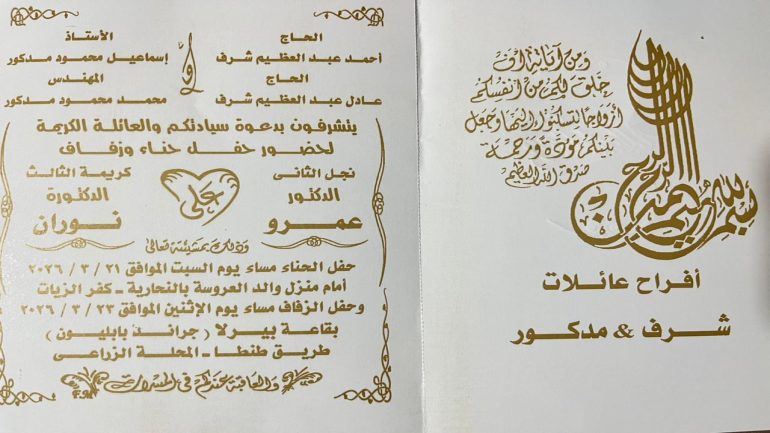 ومن آياته أن
خلق لكم من أنفسكم
أزواجا لتسكنوا إليها وجعل
بينكم مودة ورحمة
صدق الله العظيم
بسم الله الرحمن الرحيم
أفراح عائلات
شرف & مدكور
الحاج
أحمد عبد العظيم شرف
الحاج
عادل عبد العظيم شرف
و
الأستاذ
إسماعيل محمود مدكور
المهندس
محمد محمود مدكور
يتشرفون بدعوة سيادتكم والعائلة الكريمة
لحضور حفل حناء وزفاف
نجل الثانى
الدكتور
عمرو
على
كريمة الثالث
الدكتورة
نوران
وذلك بمشيئة الله تعالى
حفل الحناء مساء يوم السبت الموافق ٢١ / ٣ / ٢٠٢٦
أمام منزل والد العروسة بالنحارية - كفر الزيات
وحفل الزفاف مساء يوم الإثنين الموافق ٢٣ / ٣ / ٢٠٢٦
بقاعة بيرلا ( جراند بابليون )
طريق طنطا - المحلة الزراعى
والعاقبة عندكم فى المسرات